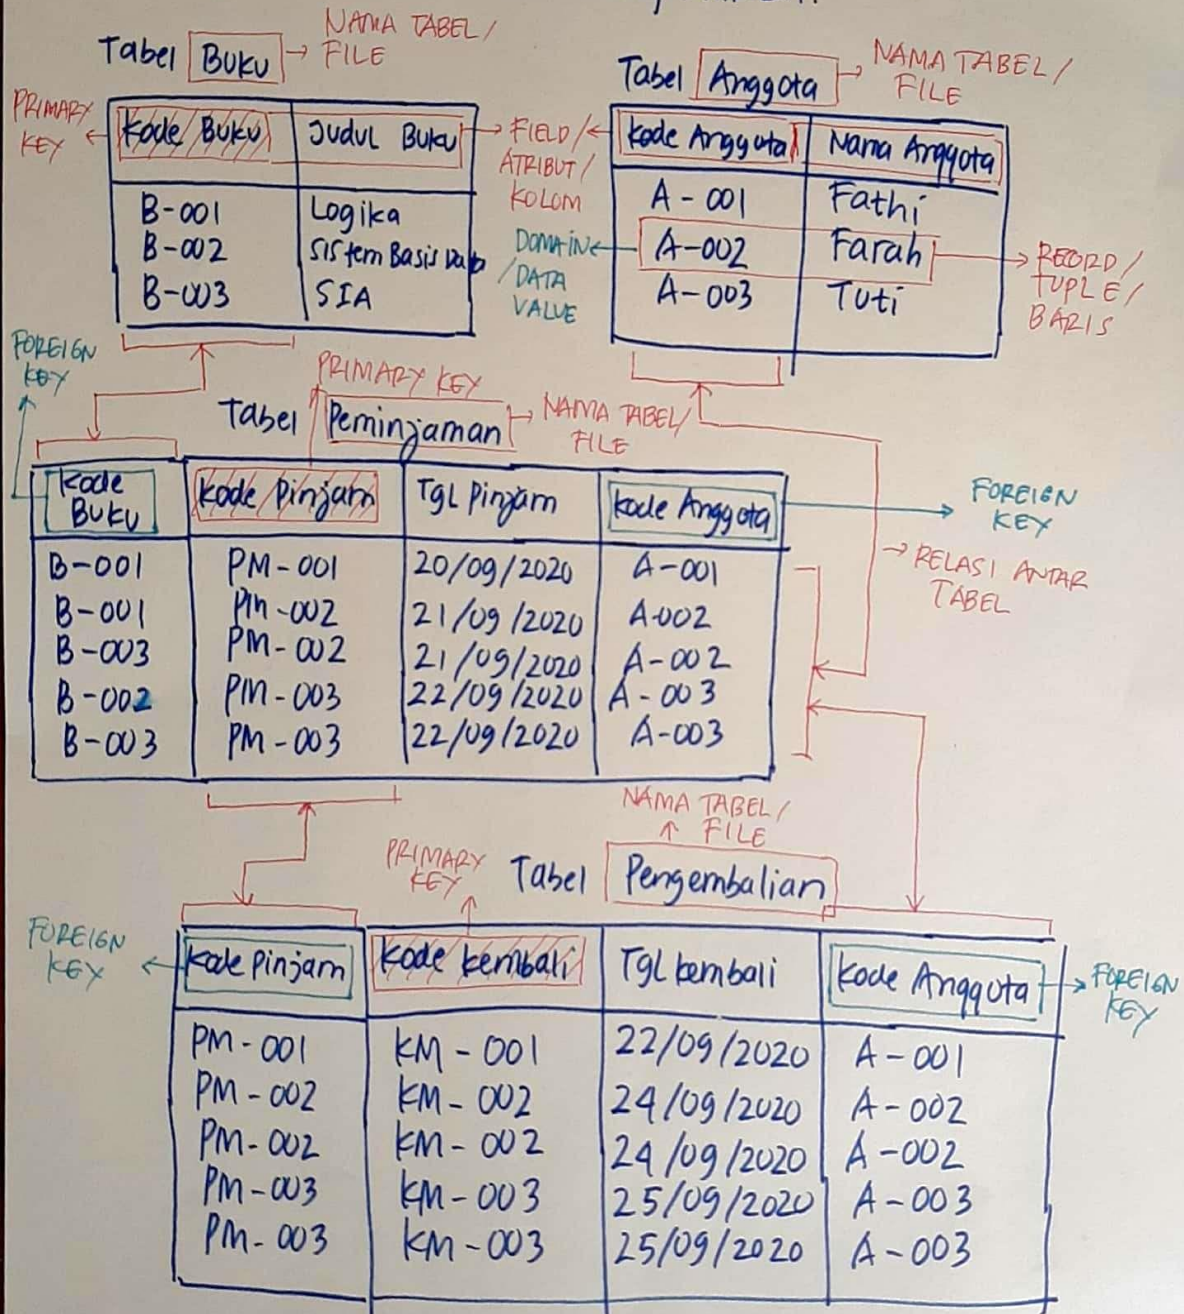 Tabel Buku
NAMA TABEL /
FILE
PRIMARY
KEY
Kode Buku Judul Buku
B-001 Logika
B-002 Sistem Basis Data
B-003 SIA
FIELD /
ATRIBUT /
KOLOM
DOMAIN
/ DATA
VALUE
Tabel Anggota
NAMA TABEL /
FILE
Kode Anggota Nama Anggota
A-001 Fathi
A-002 Farah
A-003 Tuti
RECORD /
TUPLE /
BARIS
FOREIGN
KEY
PRIMARY KEY
Tabel Peminjaman
NAMA TABEL /
FILE
Kode
Buku Kode Pinjam Tgl Pinjam Kode Anggota
B-001 PM-001 20/09/2020 A-001
B-001 PM-002 21/09/2020 A-002
B-003 PM-002 21/09/2020 A-002
B-002 PM-003 22/09/2020 A-003
B-003 PM-003 22/09/2020 A-003
FOREIGN
KEY
RELASI ANTAR
TABEL
PRIMARY
KEY
Tabel Pengembalian
NAMA TABEL /
FILE
FOREIGN
KEY
Kode Pinjam Kode Kembali Tgl kembali Kode Anggota
PM-001 KM-001 22/09/2020 A-001
PM-002 KM-002 24/09/2020 A-002
PM-002 KM-002 24/09/2020 A-002
PM-003 KM-003 25/09/2020 A-003
PM-003 KM-003 25/09/2020 A-003
FOREIGN
KEY